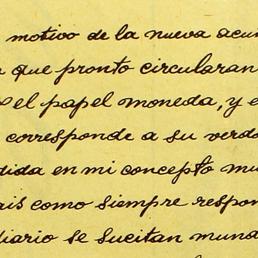 motivo de la nueva acu
que pronto circularan
el papel moneda, y e
corresponde a su verd
dida en mi concepto mu
ais como siempre respon
diario se sucitan mun